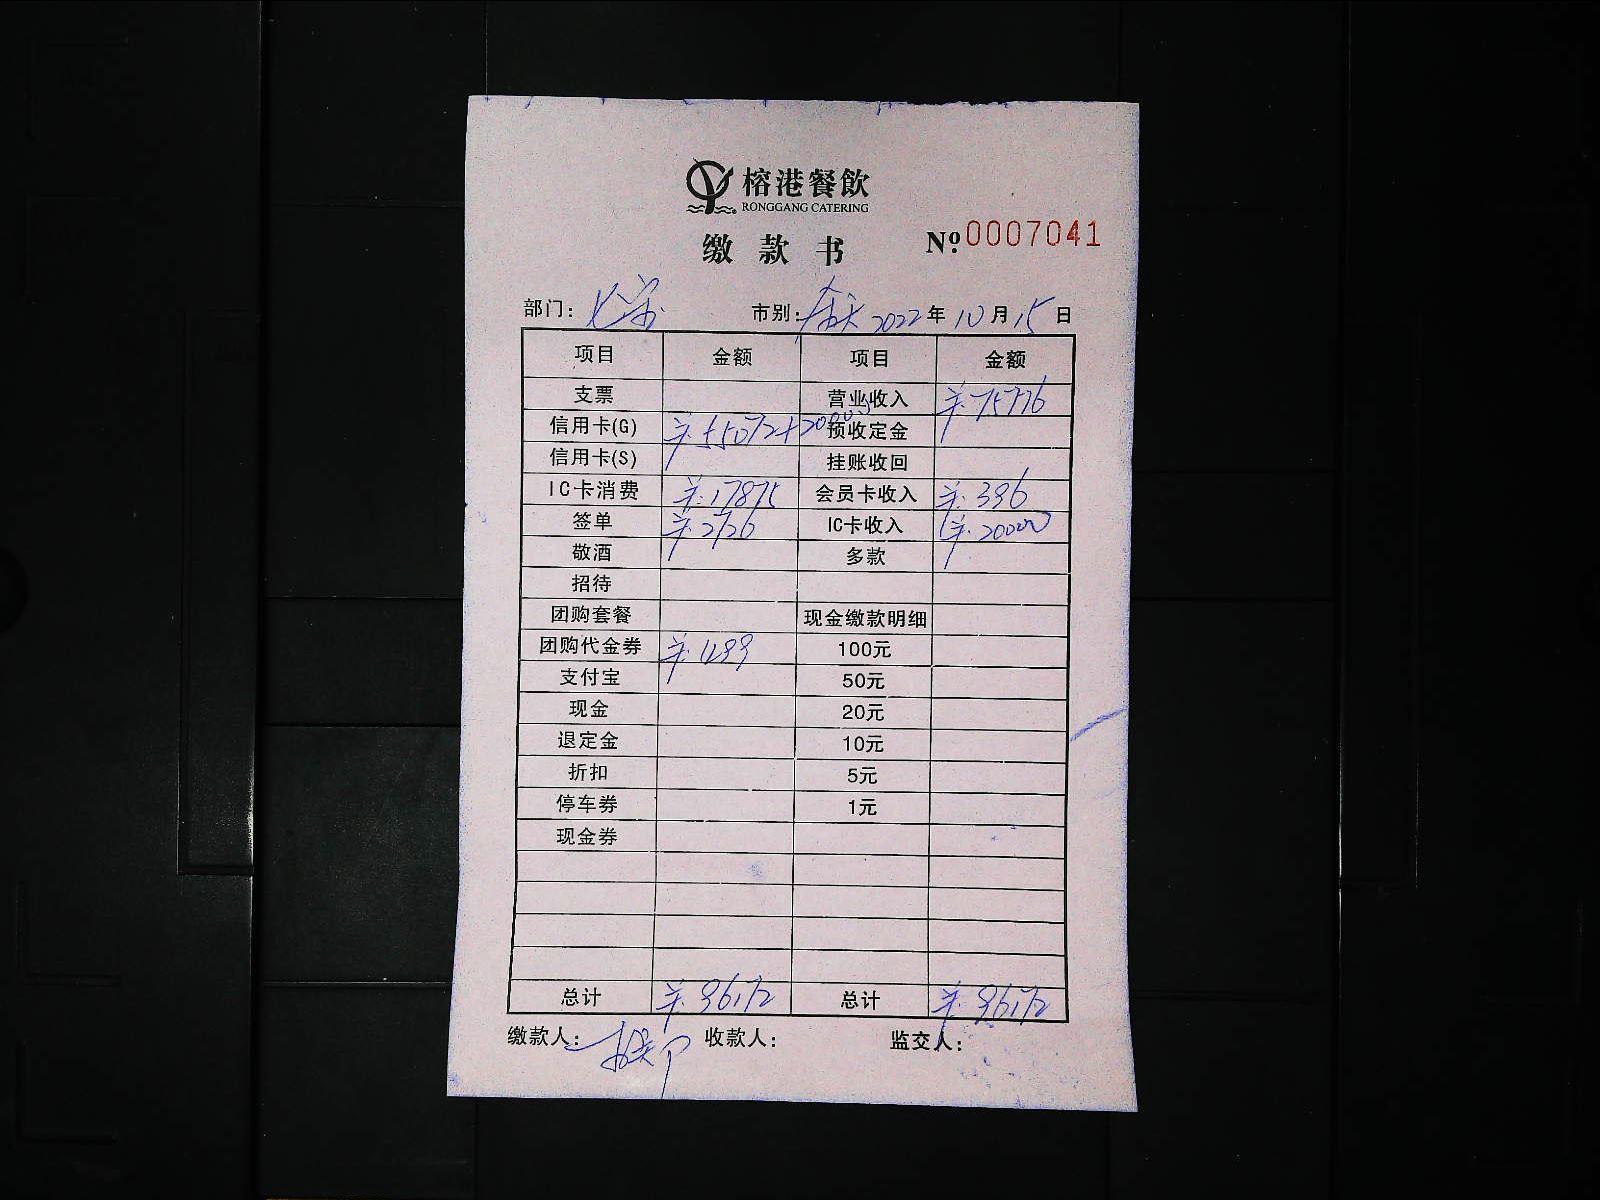 榕港餐飲
RONGGANG CATERING
缴款书
Nº 0007041
部门: 七宝 市别: 2022年10月15日
项目 金额 项目 金额
支票 营业收入 ¥75776
信用卡(G) ¥55072+20000 预收定金
信用卡(S) 挂账收回
IC卡消费 ¥17875 会员卡收入 ¥396
签单 ¥2126 IC卡收入 ¥20000
敬酒 多款
招待
团购套餐 现金缴款明细
团购代金券 ¥1099 100元
支付宝 50元
现金 20元
退定金 10元
折扣 5元
停车券 1元
现金券
总计 ¥96172 总计 ¥96172
缴款人: 收款人: 监交人: